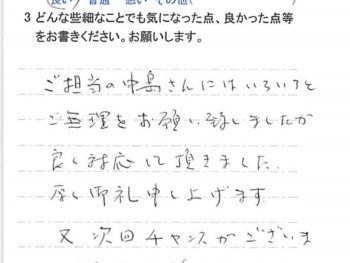 良い 普通 悪い その他(
3 どんな些細なことでも気になった点、良かった点等
をお書きください。お願いします。
ご担当の中島さんにはいろいろと
ご無理をお願い致しましたが
良く対応して頂きました.
厚く御礼申し上げます
又 次回チャンスがございま